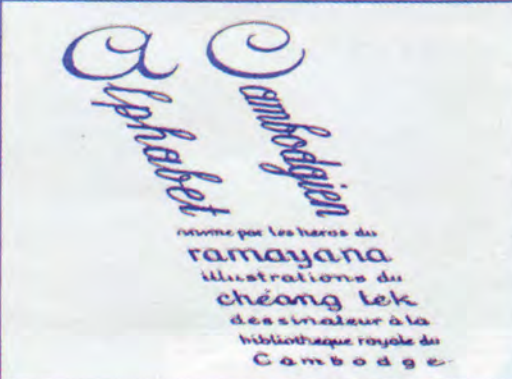 Alphabet
Cambodgien
animé par les héros du
ramayana
illustrations du
chéang lek
dessinateur à la
bibliotheque royale du
Cambodge